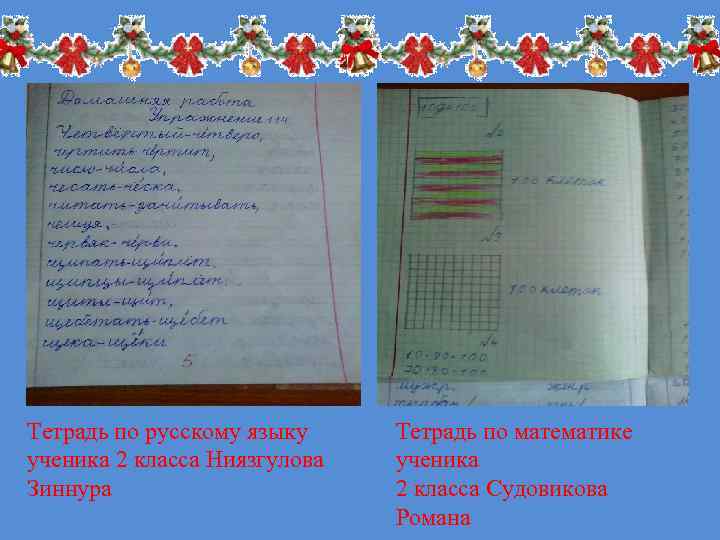 Домашняя работа
Упражнение 114
Четвёртый-четверо,
чертить-чертит,
число-числа,
чесать-чёска,
читать-зачитывать,
червяк-черви.
щипать-щиплет,
щипцы-щиплет
щиты-щит,
щебетать-щебет
щека-щёки
5
№2
100 клеток
№3
100 клеток
№4
10·90=100
Тетрадь по русскому языку
ученика 2 класса Ниязгулова
Зиннура
Тетрадь по математике
ученика
2 класса Судовикова
Романа